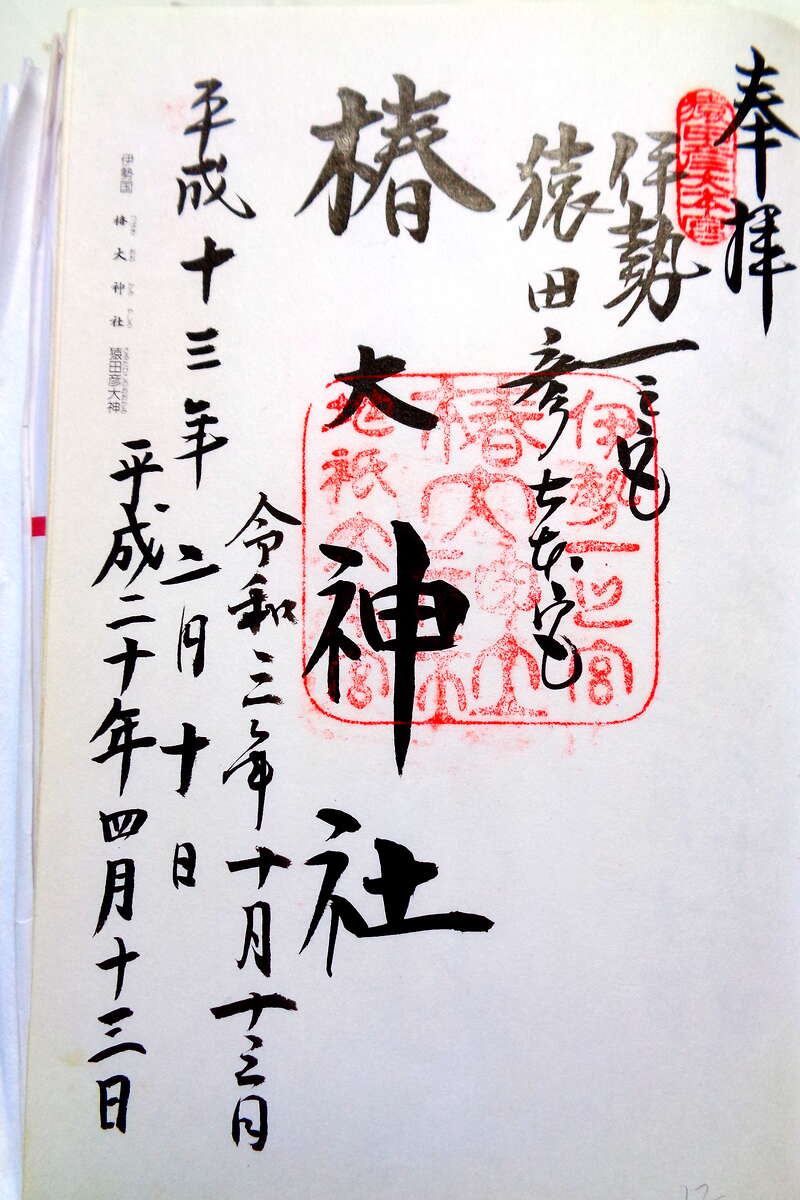 奉拝
猿田彦大本宮
伊勢一之宮
猿田彦大本宮
椿大神社
伊勢一之宮
椿大神社
地祇大本宮
令和三年十月十三日
平成十三年二月十日
平成二十年四月十三日
伊勢国 椿大神社 猿田彦大神